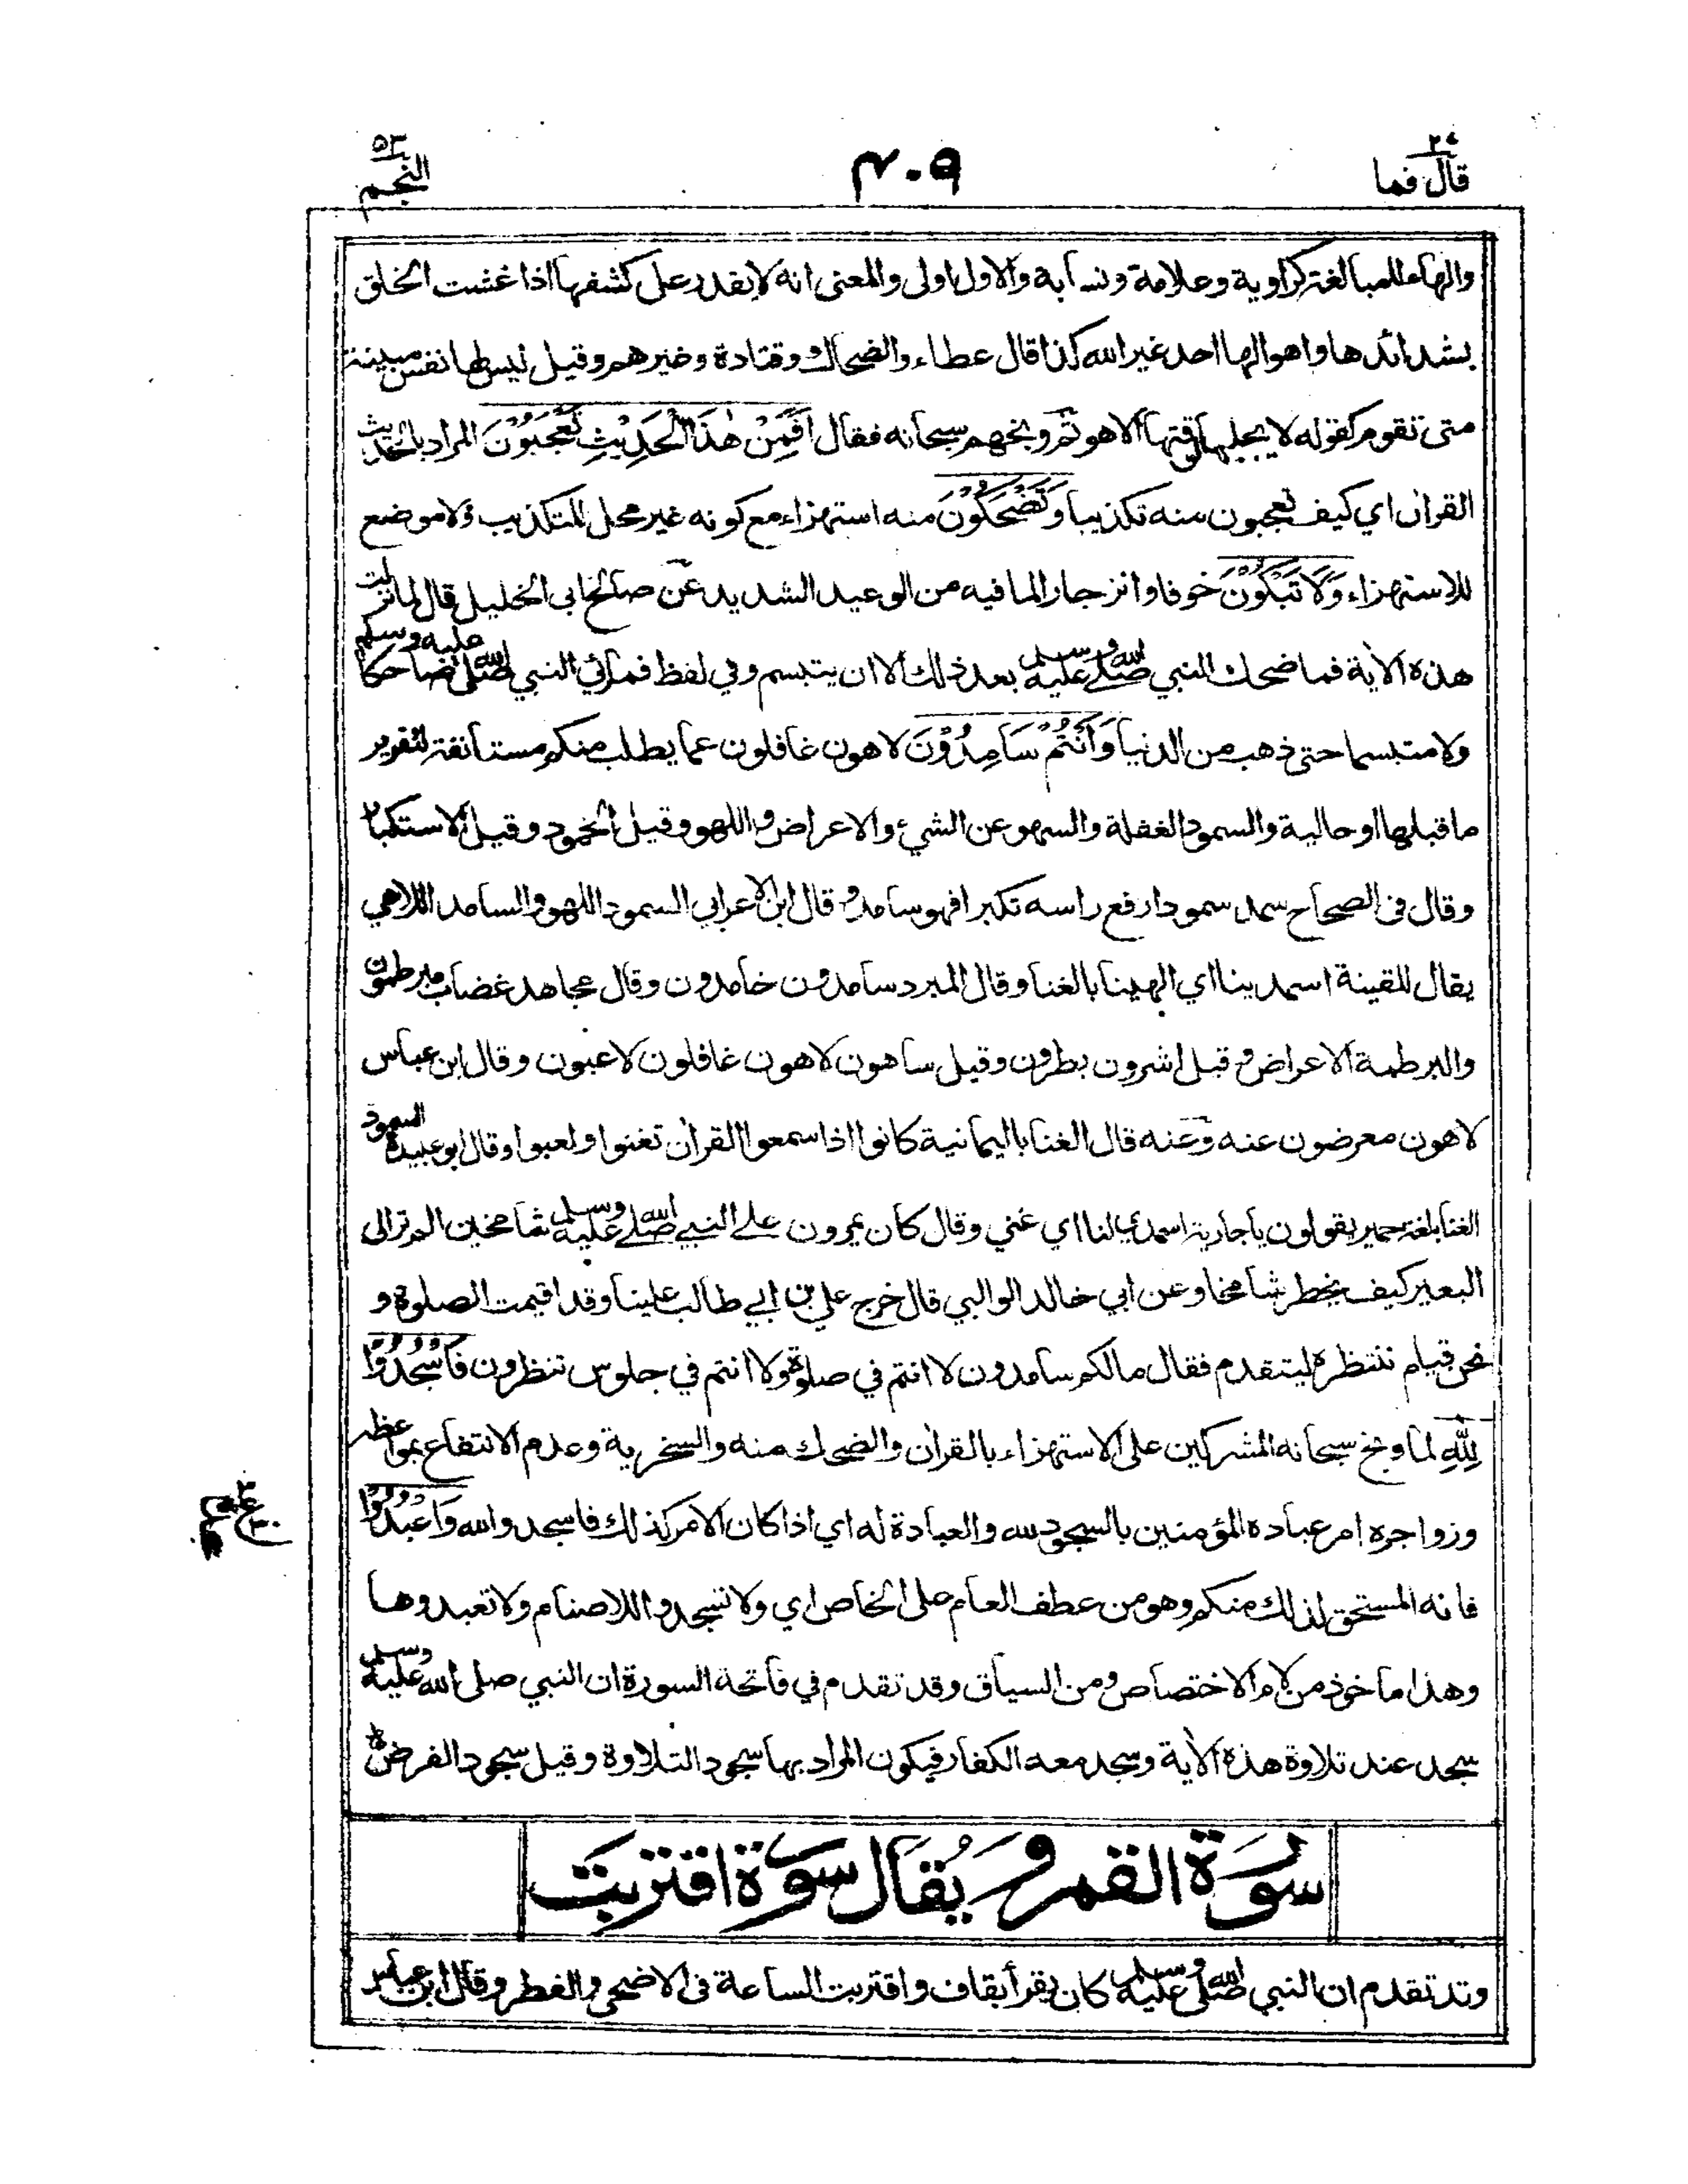 قال فما ٢٧
٤٠٩
النجم ٥٣
والهاء للمبالغة كراوية وعلامة ونسابة والاول اولى والمعنى انه لا يقدر على كشفها اذا غشت الخلق
بشدائدها واهوالها احد غير الله كذا قال عطاء والضحاك وقتادة وغيرهم وقيل ليس لها نفس مبينة
متى تقوم كقوله لا يجليها لوقتها الا هو ثم وبخهم سبحانه فقال اَفَمِنْ هٰذَا الْحَدِيْثِ تَعْجَبُوْنَ المراد بالحديث
القران اي كيف تعجبون منه تكذيبا وَتَضْحَكُوْنَ منه استهزاء مع كونه غير محل للتكذيب ولا موضع
للاستهزاء وَلَا تَبْكُوْنَ خوفا وانزجارا لما فيه من الوعيد الشديد عن صالح ابي الخليل قال لما نزلت
هذه الاية فما ضحك النبي صلى الله عليه وسلم بعد ذلك الا ان يتبسم وفي لفظ فما رئي النبي صلى الله عليه وسلم ضاحكا
ولا متبسما حتى ذهب من الدنيا وَاَنْتُمْ سَامِدُوْنَ لاهون غافلون عما يطلب منكم مستانفة لتقرير
ما قبلها او حالية والسمود الغفلة والسهو عن الشيء والاعراض واللهو وقيل الخمود وقيل الاستكبار
وقال في الصحاح سمد سمودا رفع راسه تكبرا فهو سامد وقال ابن الاعرابي السمود اللهو والسامد اللاهي
يقال للقينة اسمدينا اي الهينا بالغنا وقال المبرد سامدون خامدون وقال مجاهد غضاب مبرطمون
والبرطمة الاعراض وقيل اشرون بطرون وقيل ساهون لاهون غافلون لاعبون وقال ابن عباس
لاهون معرضون عنه وعنه قال الغنا باليمانية كانوا اذا سمعوا القران تغنوا ولعبوا وقال ابو عبيدة السمود
الغنا بلغة حمير يقولون يا جارية اسمدي لنا اي غني وقال كان يمرون على النبي صلى الله عليه وسلم شامخين الم تر الى
البعير كيف يخطر شامخا وعن ابي خالد الوالبي قال خرج علي بن ابي طالب علينا وقد اقيمت الصلوة و
نحن قيام ننتظره ليتقدم فقال ما لكم سامدون لا انتم في صلوة ولا انتم في جلوس تنظرون فَاسْجُدُوْا
لِلّٰهِ لما وبخ سبحانه المشركين على الاستهزاء بالقران والضحك منه والسخرية وعدم الانتفاع بمواعظه
وزواجره امر عباده المؤمنين بالسجود لله والعبادة له اي اذا كان الامر كذلك فاسجدوا لله وَاعْبُدُوْا
فانه المستحق لذلك منكم وهو من عطف العام على الخاص اي ولا تسجدوا للاصنام ولا تعبدوها
وهذا ماخوذ من لام الاختصاص ومن السياق وقد تقدم في فاتحة السورة ان النبي صلى الله عليه وسلم
سجد عند تلاوة هذه الاية وسجد معه الكفار فيكون المراد بها سجود التلاوة وقيل سجود الفرض
سورة القمر ويقال سورة اقتربت
وقد تقدم ان النبي صلى الله عليه وسلم كان يقرأ بقاف واقتربت الساعة في الاضحى والفطر وقال ابن عباس